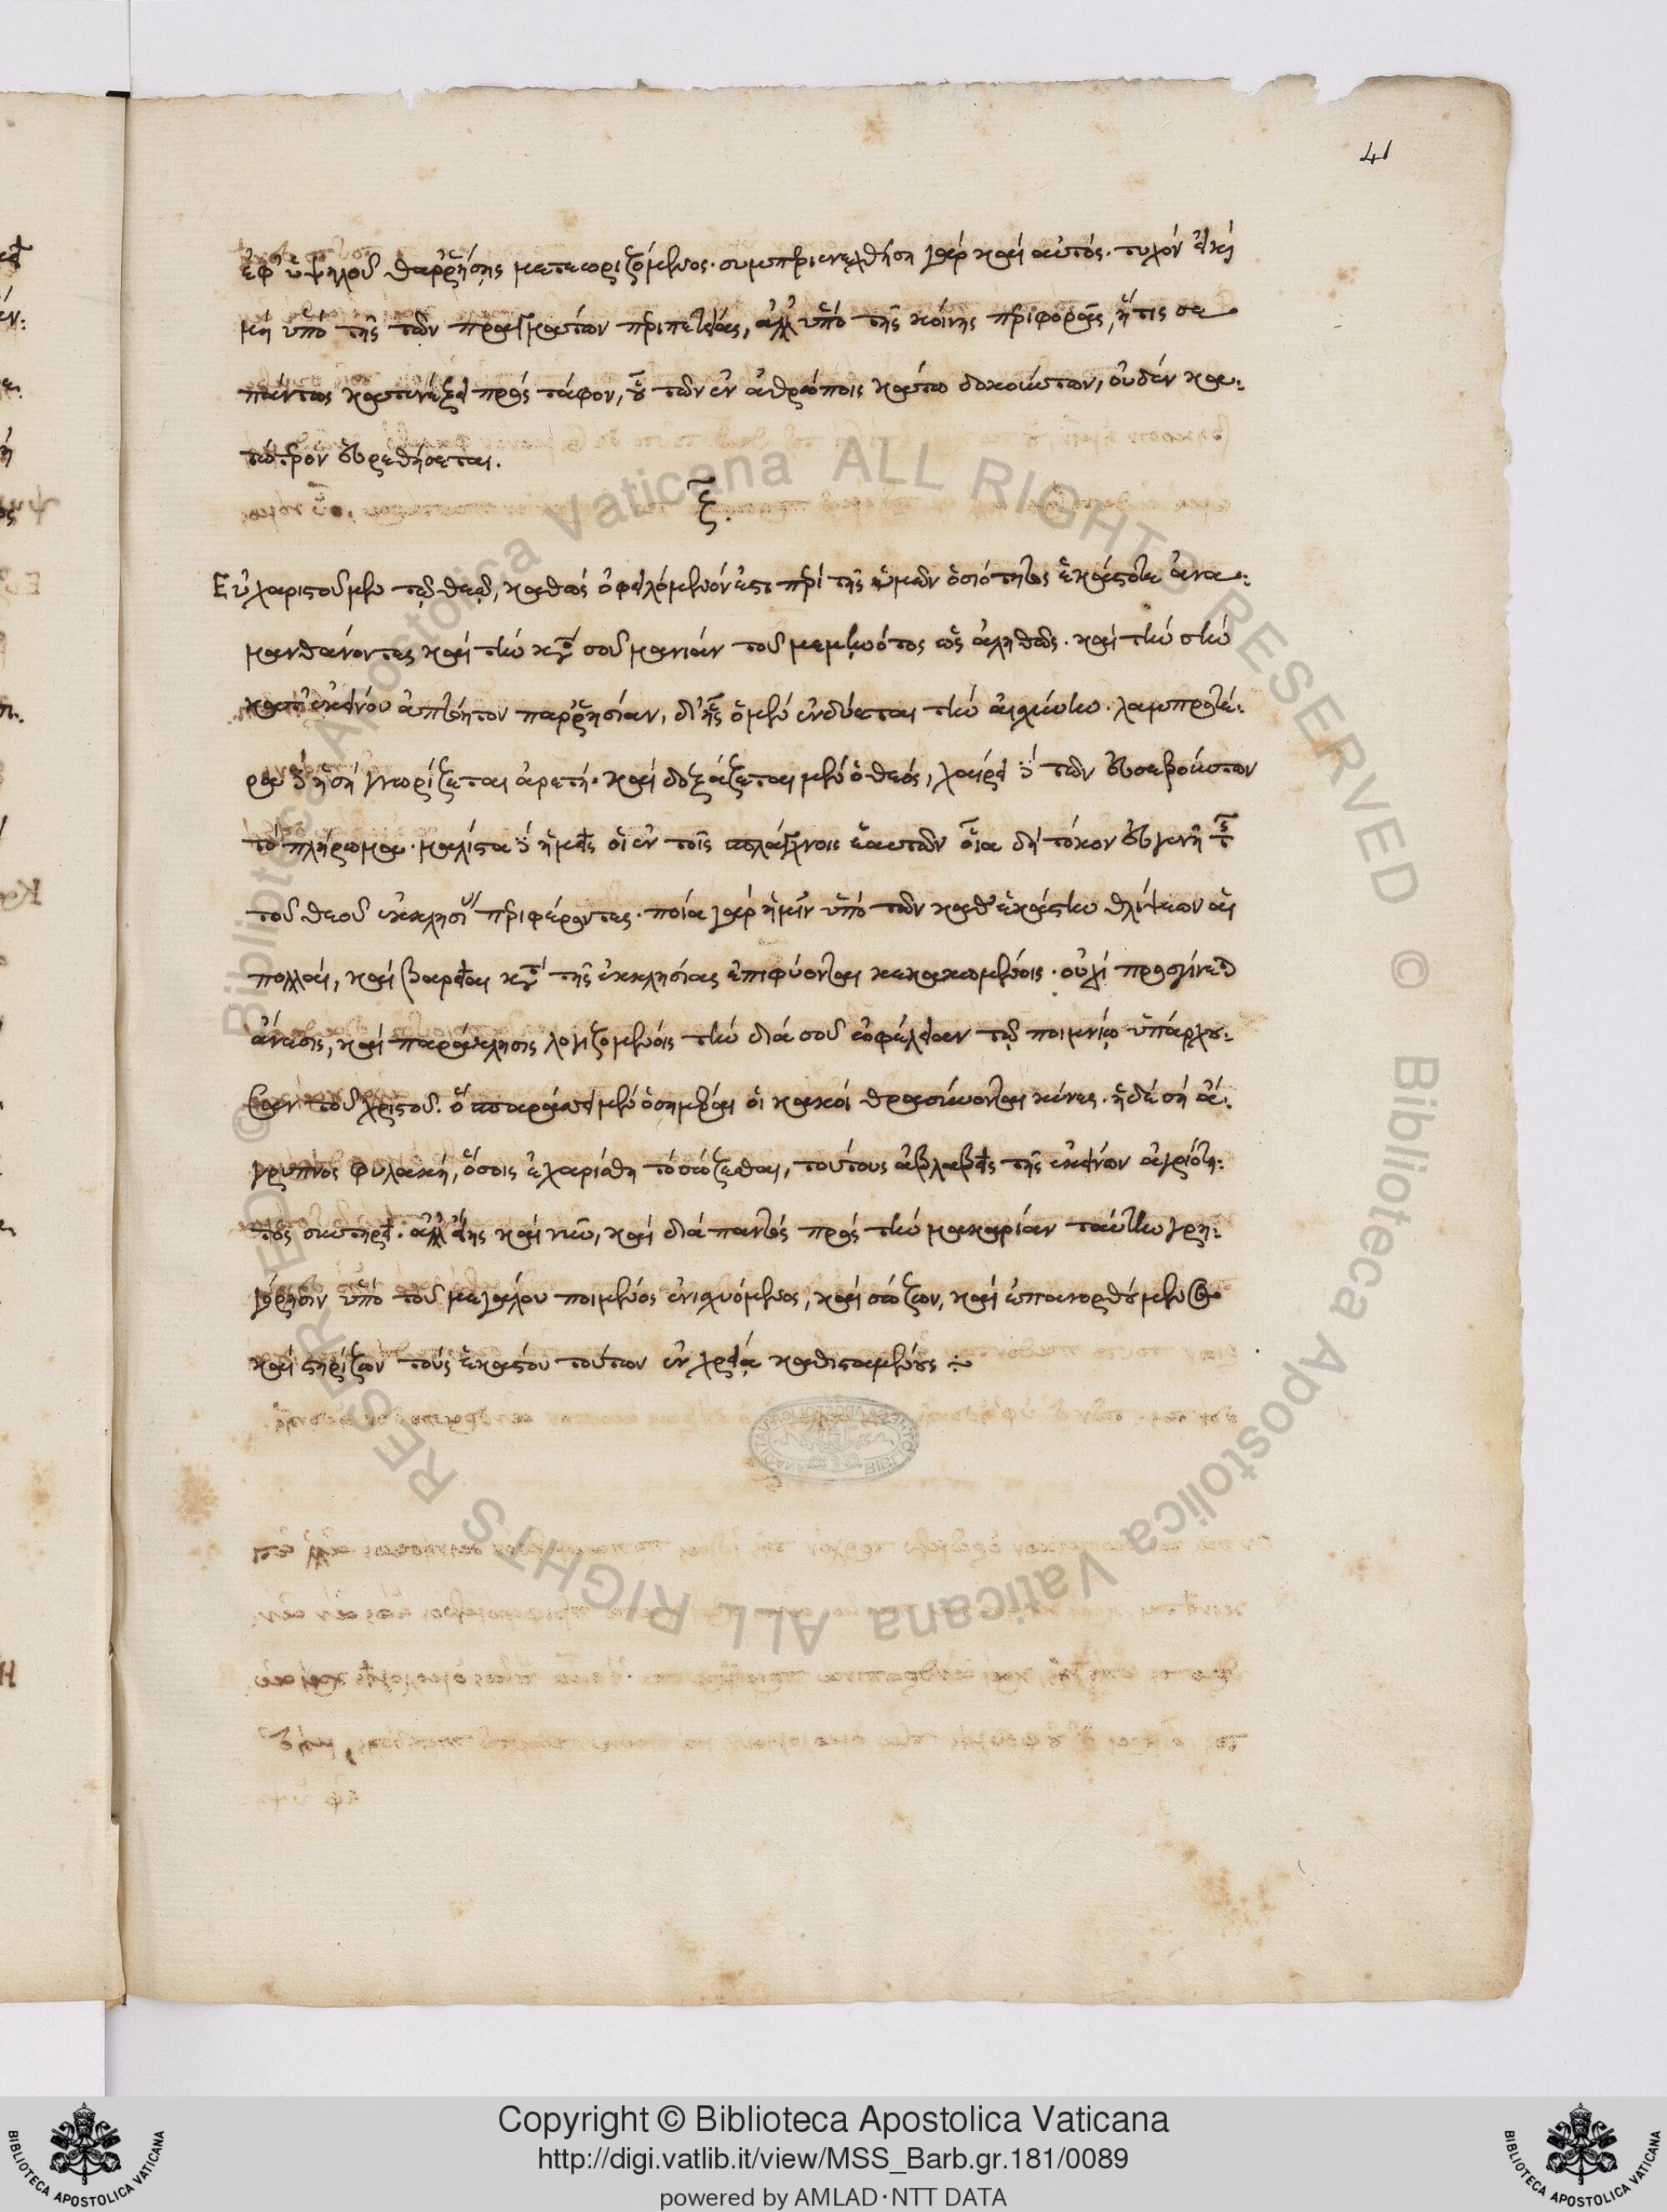 41
ἐφ' ὑψηλοῦ θαῤῥήσῃς μετεωριζόμενος. συμπεριενεχθήσῃ γὰρ καὶ αὐτός. τυχὸν εἰ καὶ
μὴ ὑπὸ τῆς τῶν πραγμάτων περιπετείας, ἀλλ' ὑπὸ τῆς κοινῆς περιφορᾶς, ἥτις σε
πάντως κατενέγξει πρὸς τάφον, οὗ τῶν ἐν ἀνθρώποις κάτω δοκούντων, οὐδὲν κα:
τώτερον εὑρεθήσεται.
ξ.
Εὐχαριστοῦμεν τῷ θεῷ, καθὼς ὀφειλόμενόν ἐστι περὶ τῆς ὑμῶν ὁσιότητος ἑκάστοτε ἀνα:
μανθάνοντες καὶ τὴν κατὰ σοῦ μανίαν τοῦ μεμηνότος ὡς ἀληθῶς. καὶ τὴν σὴν
κατ' ἐκείνου ἀπτόητον παῤῥησίαν, δι' ἧς ὁ μὲν ἐνδύεται τὴν αἰσχύνην. λαμπροτέ:
ρα δὲ ἡ σὴ γνωρίζεται ἀρετή. καὶ δοξάζεται μὲν ὁ θεός, χαίρει δὲ τῶν εὐσεβούντων
τὸ πλήρωμα. μάλιστα δὲ ἡμεῖς οἱ ἐν τοῖς σπλάγχνοις ἑαυτῶν οἷα δὴ τόκον εὐγενῆ τῆς
τοῦ θεοῦ ἐκκλησίας περιφέροντες. ποία γὰρ ἡμῖν ὑπὸ τῶν καθ' ἑκάστην θλίψεων αἳ
πολλαὶ, καὶ βαρεῖαι κατὰ τῆς ἐκκλησίας ἐπιφύονται κεκακωμένοις. οὐχὶ προσγίνεται
ἄνεσις, καὶ παράκλησις λογιζομένοις τὴν διὰ σοῦ ὠφέλειαν τῷ ποιμνίῳ ὑπάρχου:
σαν τοῦ χριστοῦ. ὃ σπαράττειν μὲν ὁσημέραι οἱ κακοὶ θρασύνονται κύνες. ἡ δὲ σὴ ἄ:
γρυπνος φυλακή, ὅσοις ἐχαρίσθη τὸ σώζεσθαι, τούτους ἀβλαβεῖς τῆς ἐκείνων ἀγριότη:
τος συντηρεῖ. ἀλλ' εἴης καὶ νῦν, καὶ διὰ παντὸς πρὸς τὴν μακαρίαν ταύτην γρη:
γόρησιν ὑπὸ τοῦ μεγάλου ποιμένος ἐνισχυόμενος, καὶ σώζων, καὶ ἐπανορθούμενος
καὶ στηρίζων τοὺς ἑκάστου τούτων ἐν χρείᾳ καθισταμένους :~
Copyright © Biblioteca Apostolica Vaticana
http://digi.vatlib.it/view/MSS_Barb.gr.181/0089
powered by AMLAD·NTT DATA
BIBLIOTECA APOSTOLICA VATICANA
BIBLIOTECA APOSTOLICA VATICANA
© Biblioteca Apostolica Vaticana ALL RIGHTS RESERVED © Biblioteca Apostolica Vaticana ALL RIGHTS RESERVED